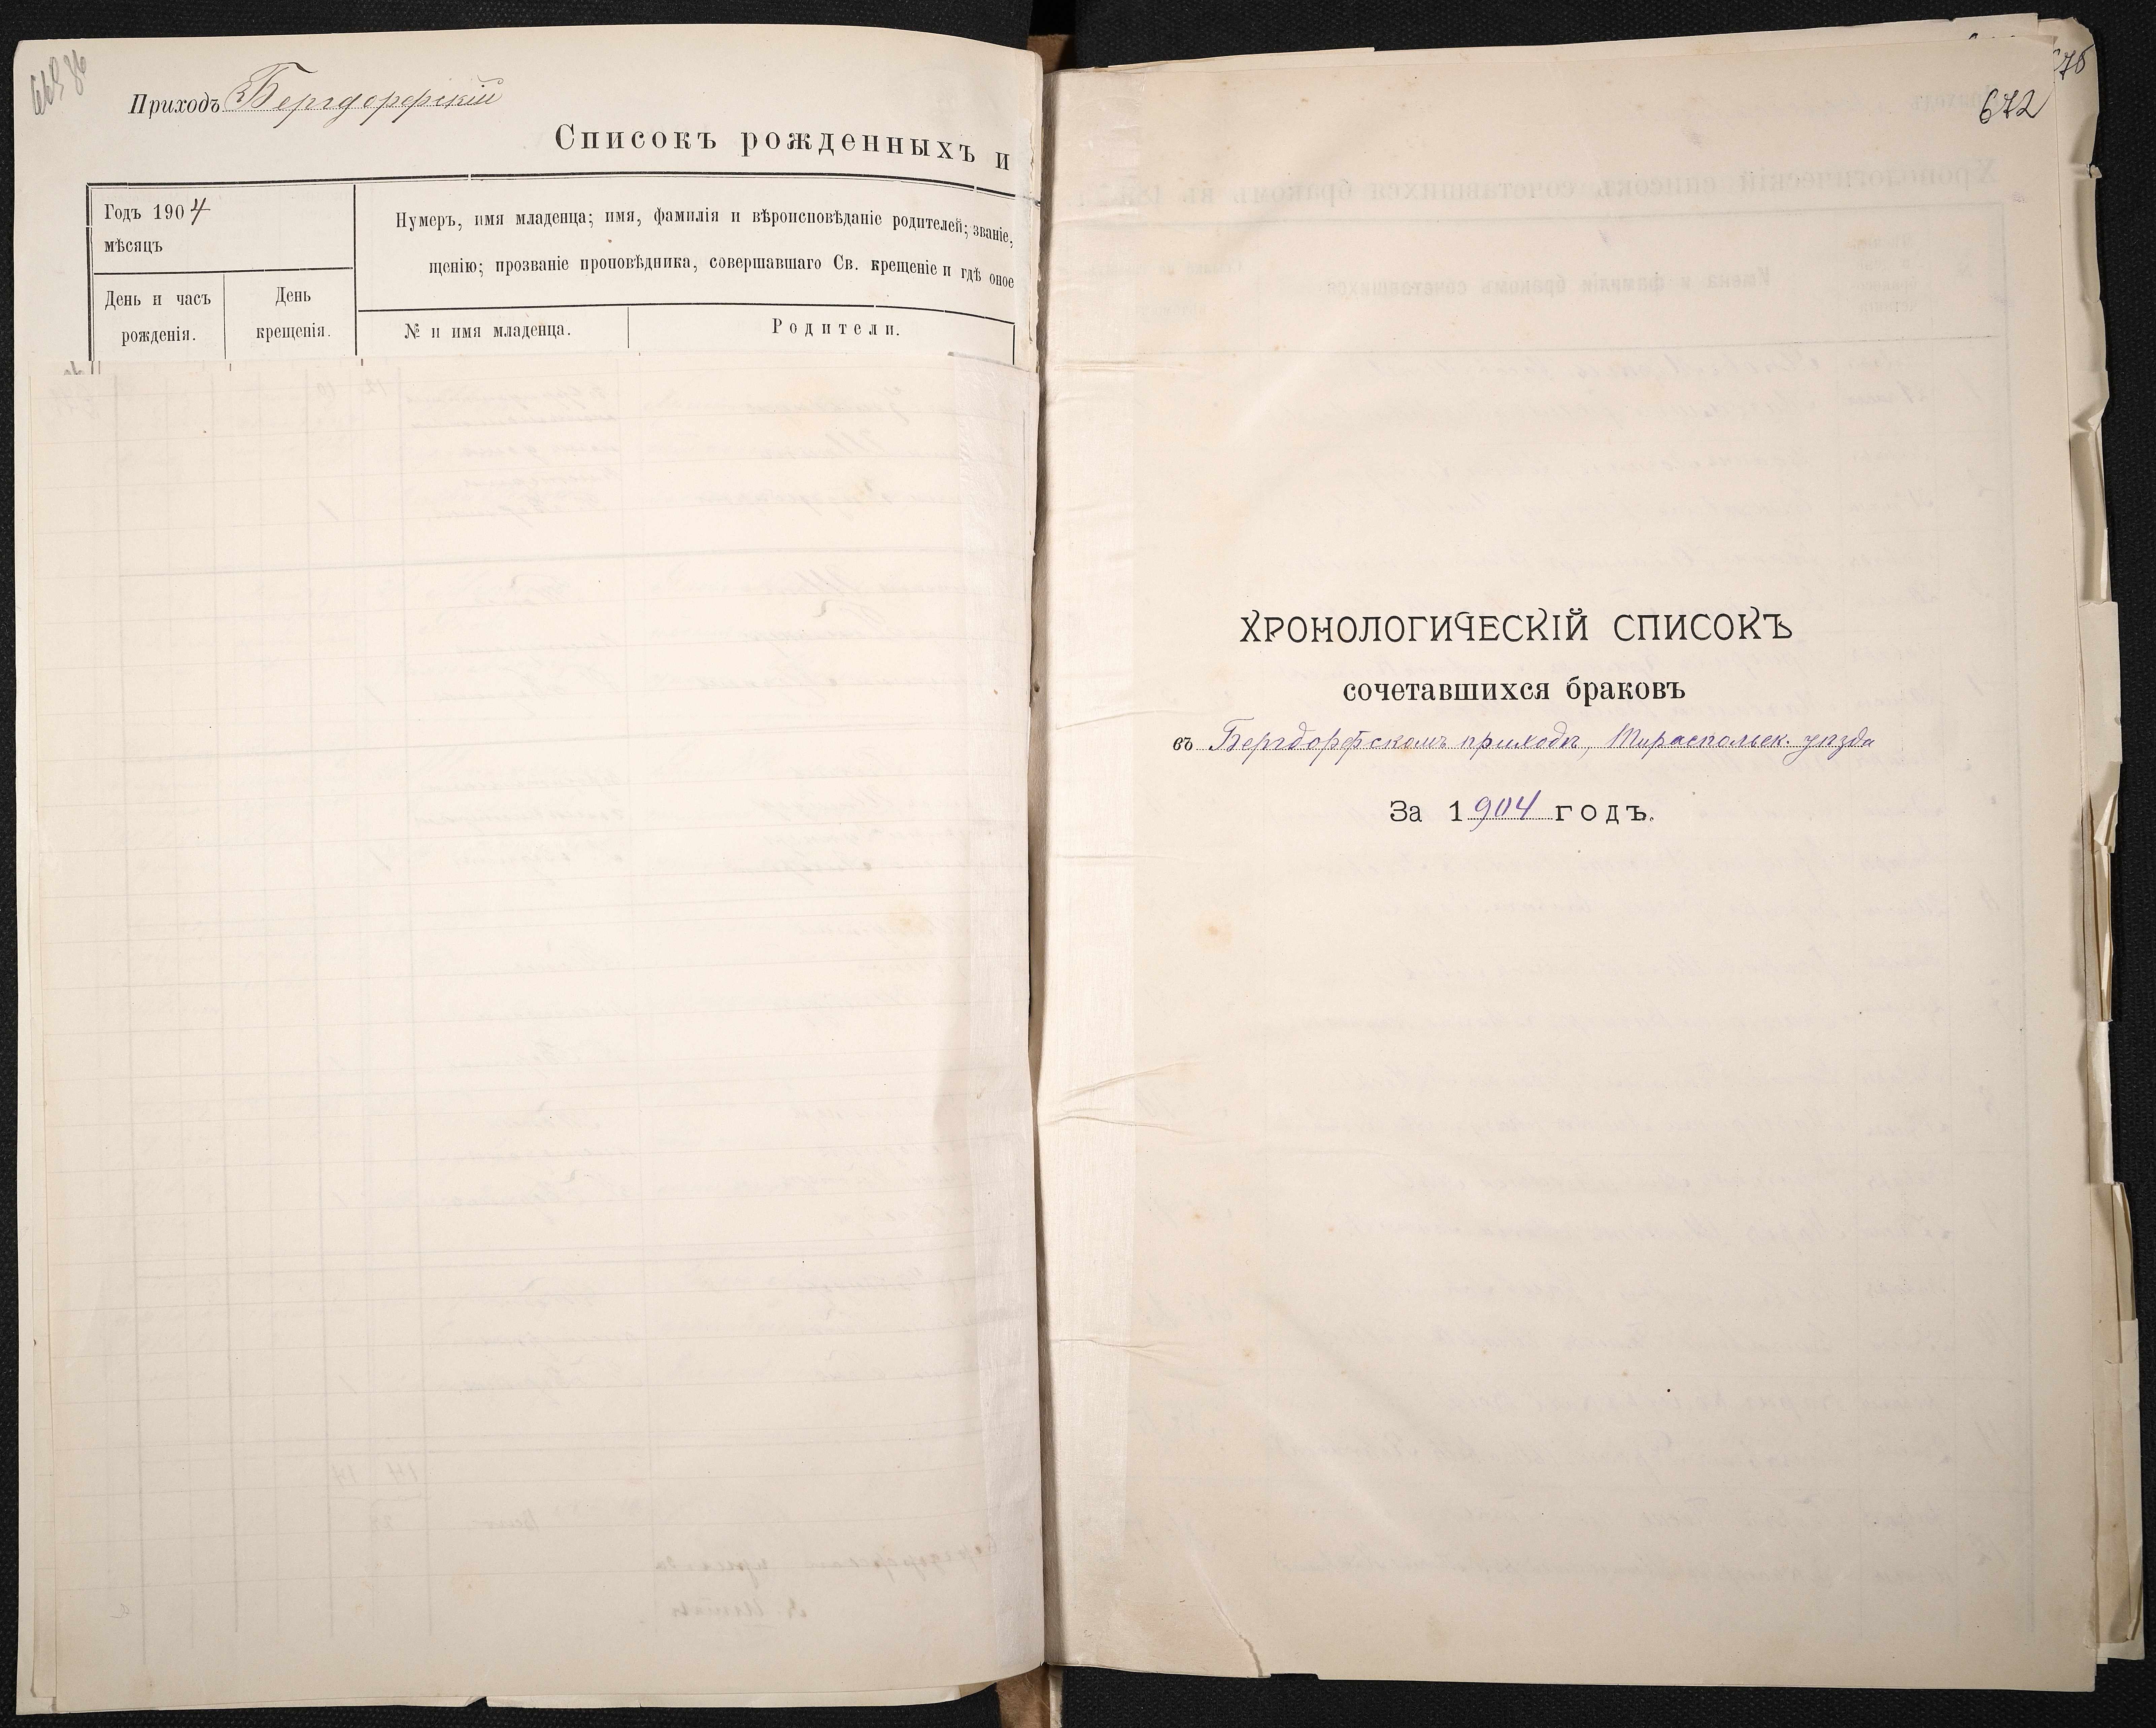 Приходъ Бергдорфскій
Списокъ рожденныхъ и
Годъ 1904
мѣсяцъ
Нумеръ, имя младенца; имя, фамилія и вѣроисповѣданіе родителей; званіе,
щенію; прозваніе проповѣдника, совершавшаго Св. крещеніе и гдѣ оное
День и часъ
рожденія.
День
крещенія.
№ и имя младенца.
Родители.
672
ХРОНОЛОГИЧЕСКІЙ СПИСОКЪ
сочетавшихся браковъ
въ Бергдорфскомъ приходѣ, Тираспольск. уѣзда
За 1904 годъ.